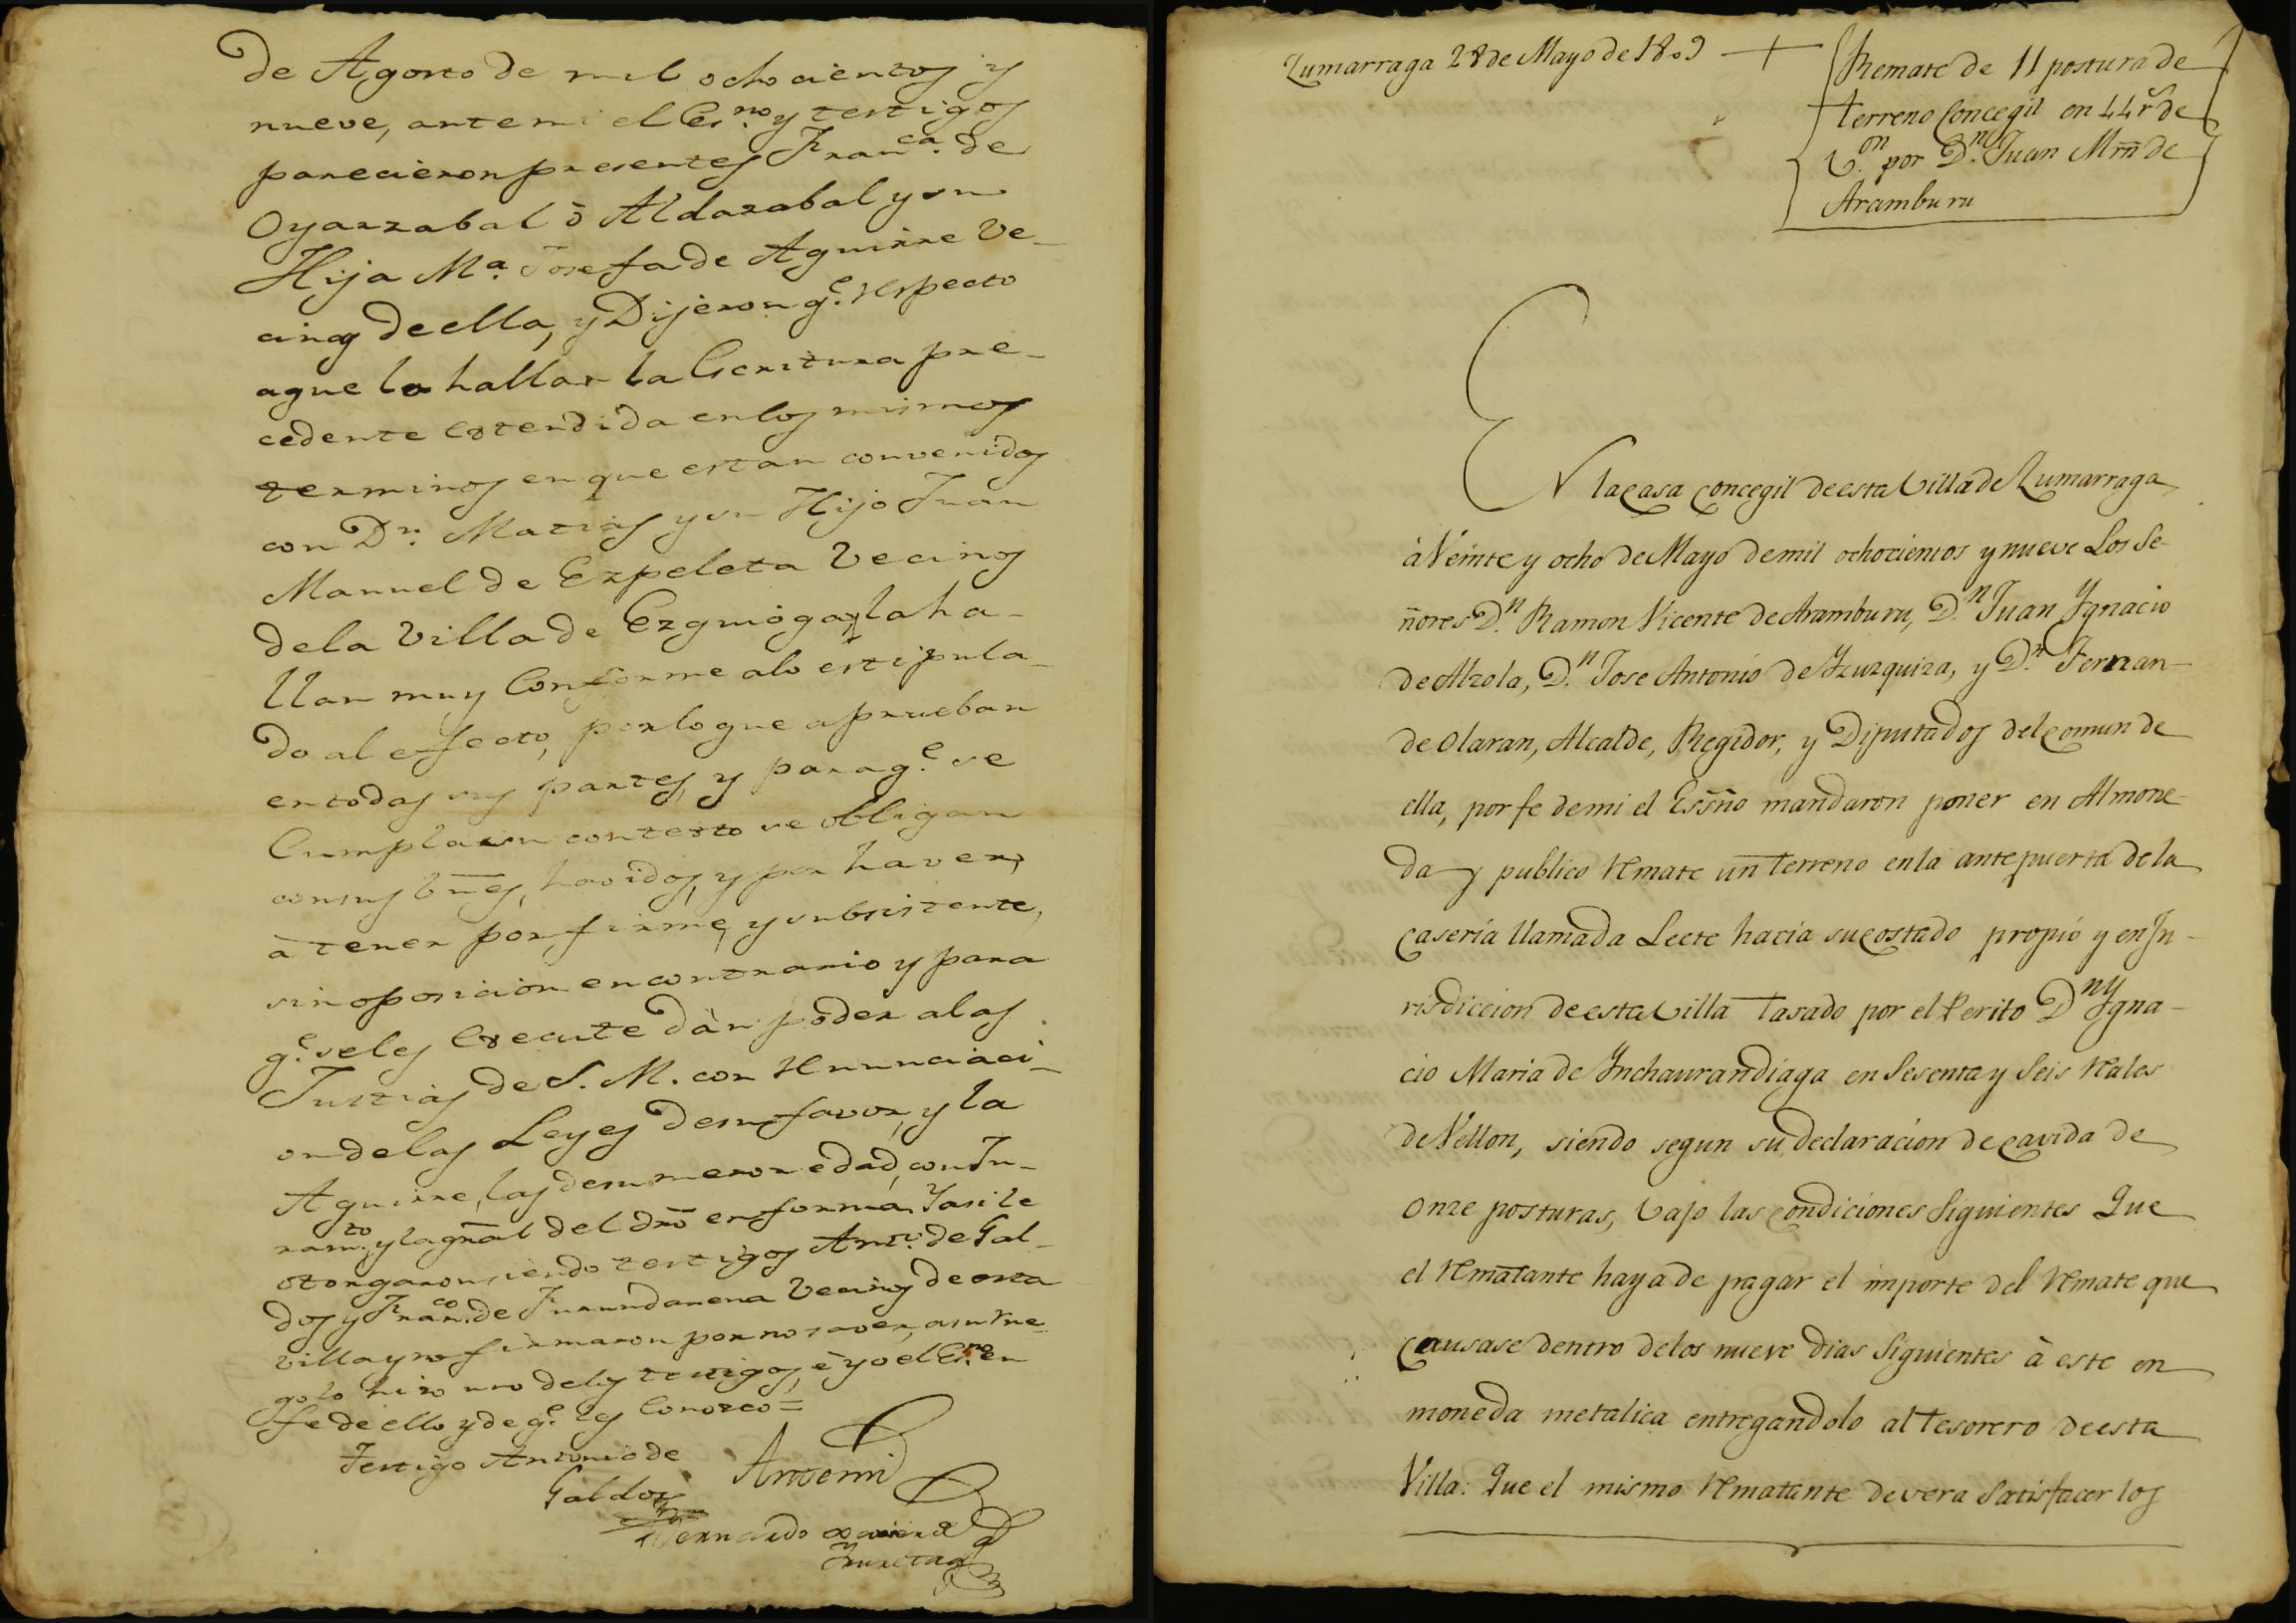 de Agosto de mil ochocientos y
nueve, ante mi el Es.no y testigos
parecieron presentes Fran.ca de
Oyarzabal ò Aldazabal y su
Hija M.a Josefa de Aguirre Ve-
cinos de ella, y Dijeron q.e respecto
a que la hallan la Escritura pre-
cedente extendida en los mismos
terminos en que estan convenidos
con D.n Matias y su Hijo Juan
Manuel de Ezpeleta Vecinos
de la Villa de Ezquioga, y la ha-
llan muy Conforme a lo estipula-
do al efecto, por lo que aprueban
en todas sus partes, y para q.e se
Cumpla su contexto se obligan
con sus bn̄es, havidos, y por haver,
à tener por firme, y subsistente,
sin oposicion en contrario y para
q.e se les Execute dàn poder a las
Justicias de S. M. con renunciaci-
on de las Leyes de su favor, y la
Aguirre, las de su menor edad, con Ju-
ram.to y la gr̄al del dr̄o en forma, Y asi lo
otorgaron, siendo testigos Ant.o de Gal-
dos y Fran.co de Vecinos de esta
villa y no firmaron por no saver, a su rue-
go lo hizo uno de los testigos, è yo el Es.no en
fe de ello y de q.e les Conozco =
Testigo Antonio de
Galdos
Antemi
Bernardo
Zumarraga 28 de Mayo de 1809
Remate de 11 postura de
terreno Concegil en 44 r.s de
V.on por D.n Juan Mr̄n de
Aramburu
EN la Casa Concegil de esta Villa de Zumarraga,
à Veinte y ocho de Mayo de mil ochocientos y nueve Los Se-
ñores D.n Ramon Vicente de Aramburu, D.n Juan Ygnacio
de Alzola, D.n Jose Antonio de Yzuzquiza, y D.n Fernan-
de Olaran, Alcalde, Regidor, y Diputados del Comun de
ella, por fe de mi el Ess̄no mandaron poner en Almone-
da y publico remate un terreno en la antepuerta de la
Caseria llamada Leete hacia su Costado propio y en Ju-
risdiccion de esta Villa tasado por el Perito D.n Ygna-
cio Maria de Ynchaurandiaga en Sesenta y Seis reales
de Vellon, siendo segun su declaracion de Cavida de
Onze posturas, vajo las Condiciones Siguientes Que
el rematante haya de pagar el importe del remate que
Causase dentro de los nueve dias Siguientes à este en
moneda metalica entregandolo al tesorero de esta
Villa: Que el mismo rematante devera Satisfacer los